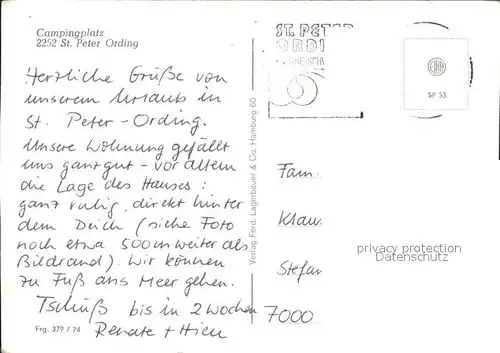 Campingplatz
2252 St. Peter Ording
Herzliche Grüße von
unserem Urlaub in
St. Peter-Ording.
Unsere Wohnung gefällt
uns ganz gut - vor allem
die Lage des Hauses:
ganz ruhig, direkt hinter
dem Deich (siehe Foto
noch etwa 500m weiter als
Bildrand). Wir können
zu Fuß ans Meer gehen.
Tschüß bis in 2 Wochen
Renate +
Frg. 379 / 74
Verlag Ferd. Lagerbauer & Co. Hamburg 60
ST. PETER
ORDI
SP 53
Fam.
Klau
Stefan
7000
privacy protection
Datenschutz